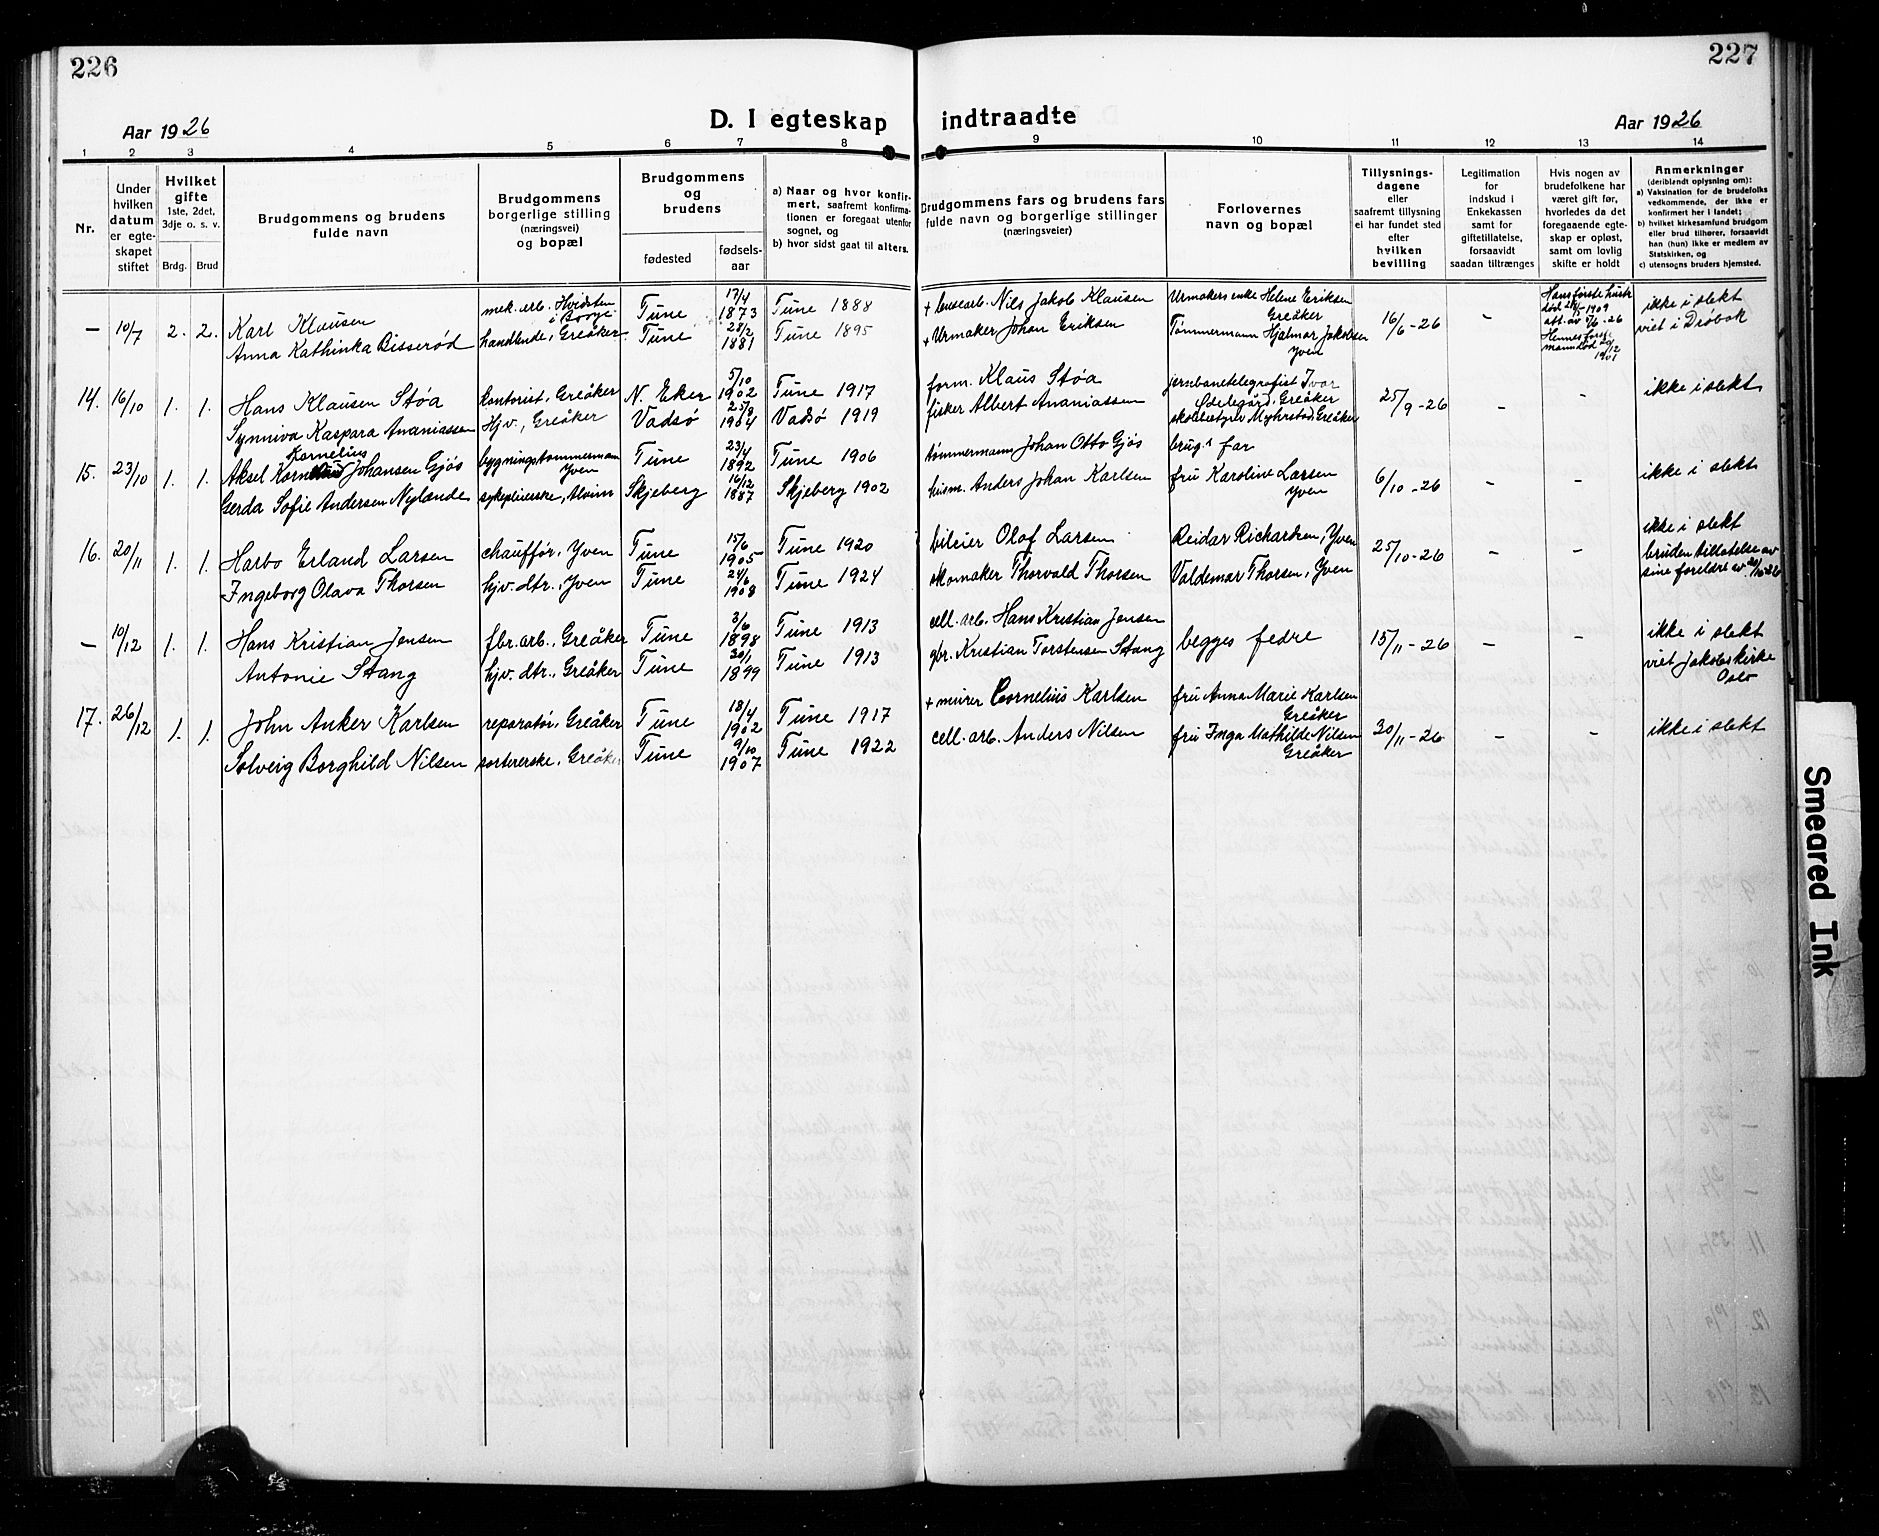 226
227
Aar 1926
D. I egteskap
indtraadte
Aar 1926
1 2 3 4 5 6 7 8 9 10 11 12 13 14
Nr.
Under hvilken datum er egteskapet stiftet
Hvilket gifte 1ste, 2det, 3dje o. s. v.
Brdg.
Brud
Brudgommens og brudens fulde navn
Brudgommens borgerlige stilling (næringsvei) og bopæl
Brudgommens og brudens
fødested
fødsels-aar
a) Naar og hvor konfirmert, saafremt konfirmationen er foregaat utenfor sognet, og
b) hvor sidst gaat til alters.
Brudgommens fars og brudens fars fulde navn og borgerlige stillinger (næringsveier)
Forlovernes navn og bopæl
Tillysningsdagene eller saafremt tillysning ei har fundet sted efter hvilken bevilling
Legitimation for indskud i Enkekassen samt for giftetillatelse, forsaavidt saadan tiltrænges
Hvis nogen av brudefolkene har været gift før, hvorledes da det foregaaende egteskap er opløst, samt om lovlig skifte er holdt
Anmerkninger (deriblandt oplysning om):
a) Vaksination for de brudefolks vedkommende, der ikke er konfirmert her i landet;
b) hvilket kirkesamfund brudgom eller brud tilhører, forsaavidt han (hun) ikke er medlem av Statskirken, og
c) utensogns bruders hjemsted.
— 10/7 2. 2. Karl Klausen mek. arb. Hvidsten i Borge Tune 17/4 1873 Tune 1888 + Nils Jakob Klausen Urmakers enke Helene Eriksen Greåker 16/6-26 - Hans første hustr død 1909 att. av 5/6-26 ikke i slekt
Anna Kathinka Bisserød handlende, Greåker Tune 28/2 1881 Tune 1895 + Urmaker Johan Eriksen Tømmermann Hjalmar Jakobsen Yven Hennes første mann død 1901 viet i Drøbak
14. 16/10 1. 1. Hans Klausen Støa kontorist, Greåker N. Eker 5/10 1902 Tune 1917 form. Klaus Støa jernbanetelegrafist Ivar Greåker 25/9-26 - - ikke i slekt
Synniva Kaspara Ananiassen Hjv., Greåker Vadsø 25/8 1904 Vadsø 1919 fisker Albert Ananiassen skolebestyrer Myhrstad, Greåker
15. 23/10 1. 1. Aksel Kornelius Johansen Gjøs bygningstømmermann Yven Tune 23/4 1892 Tune 1906 tømmermann Johan Otto Gjøs brug.s far 6/10-26 - - ikke i slekt
Gerda Sofie Andersen Nylænde sykepleierske, Skjeberg 16/12 1887 Skjeberg 1902 husm. Anders Johan Karlsen fru Karoline Larsen Yven
16. 20/11 1. 1. Harbo Erland Larsen chauffør, Yven Tune 15/6 1905 Tune 1920 bileier Olof Larsen Reidar Richardsen, Yven 25/10-26 - - ikke i slekt
Ingeborg Olava Thorsen hjv. dtr., Yven Tune 24/6 1908 Tune 1924 skomaker Thorvald Thorsen Valdemar Thorsen, Yven bruden tillatelse av sine foreldre
— 10/12 1. 1. Hans Kristian Jensen fbr. arb., Greåker Tune 3/6 1898 Tune 1913 cell. arb. Hans Kristian Jensen begges fedre 15/11-26 - - ikke i slekt
Antonie Stang hjv. dtr., Greåker Tune 30/1 1899 Tune 1913 gbr. Kristian Torstensen Stang viet Jakobskirke Oslo
17. 26/12 1. 1. John Anker Karlsen reparatør, Greåker Tune 18/4 1902 Tune 1917 + murer Cornelius Karlsen fru Anna Marie Karlsen Greåker 30/11-26 - - ikke i slekt
Solveig Borghild Nilsen sortererske, Greåker Tune 9/10 1907 Tune 1922 cell. arb. Anders Nilsen fru Inga Mathilde Nilsen Greåker
Smeared Ink